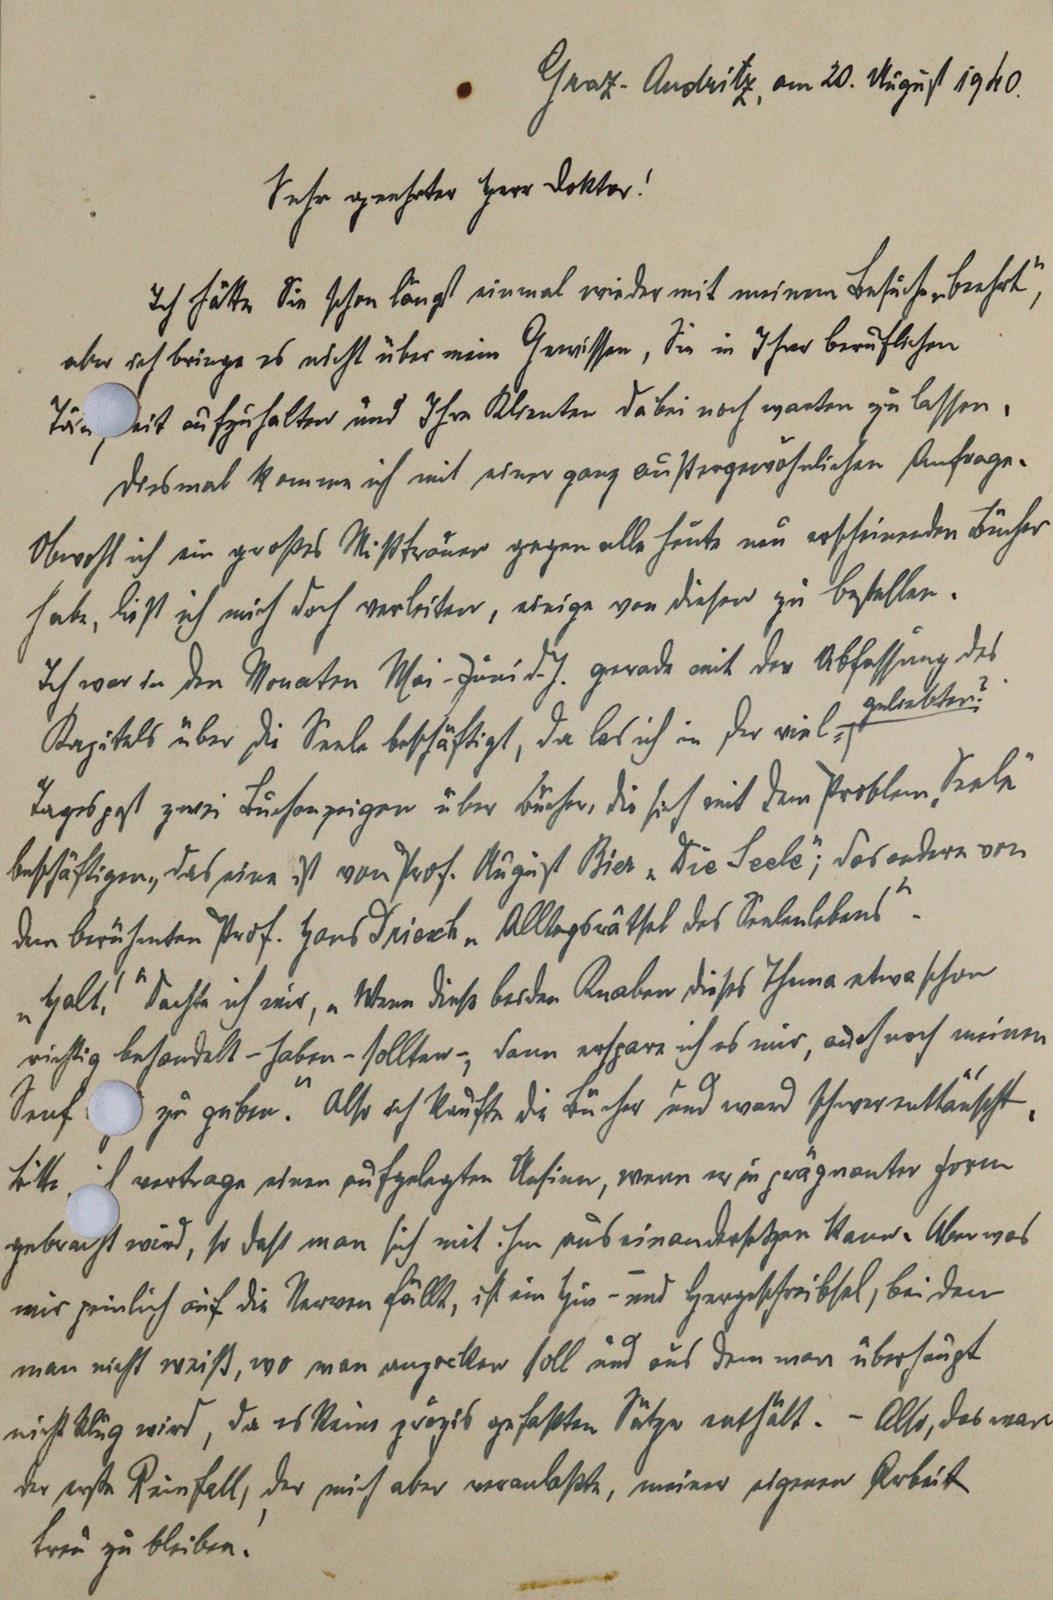 Graz-Andritz, am 20. August 1940.
Sehr geehrter Herr Doktor!
Ich hätte Sie schon längst einmal wieder mit meinem Besuche „beehrt“,
aber ich bringe es nicht über mein Gewissen, Sie in Ihrer beruflichen
Tä eit aufzuhalten und Ihre Klienten dabei noch warten zu lassen.
Diesmal komme ich mit einer ganz außergewöhnlichen Anfrage.
Obwohl ich ein großes Mißtrauen gegen alle heute neu erscheinenden Bücher
habe, ließ ich mich doch verleiten, einige von diesen zu bestellen.
Ich war in den Monaten Mai-Juni d.J. gerade mit der Abfassung des
Kapitels über die Seele beschäftigt, da las ich in der viel- geliebten?
Tagespost zwei Buchanzeigen über Bücher, die sich mit dem Problem „Seele“
beschäftigen, das eine ist von Prof. August Bier „Die Seele“; das andere von
dem berühmten Prof. Hans Driesch „Alltagsrätsel des Seelenlebens“.
„Halt!“ dachte ich mir, „Wenn diese beiden Knaben dieses Thema etwa schon
richtig behandelt-haben-sollten-, dann erspare ich es mir, auch noch meinen
Senf zu geben.“ Also ich kaufte die Bücher und ward schwer enttäuscht.
Bitte, ich vertrage einen aufgelegten Unsinn, wenn er in prägnanter Form
gebracht wird, so daß man sich mit ihm auseinandersetzen kann. Aber was
mir peinlich auf die Nerven fällt, ist ein Hin- und Hergeschreibsel, bei dem
man nicht weiß, wo man anpacken soll und aus dem man überhaupt
nicht klug wird, da es keine präzis gefaßten Sätze enthält. - Also, das war
der erste Reinfall, der mich aber veranlaßte, meiner eigenen Arbeit
treu zu bleiben.